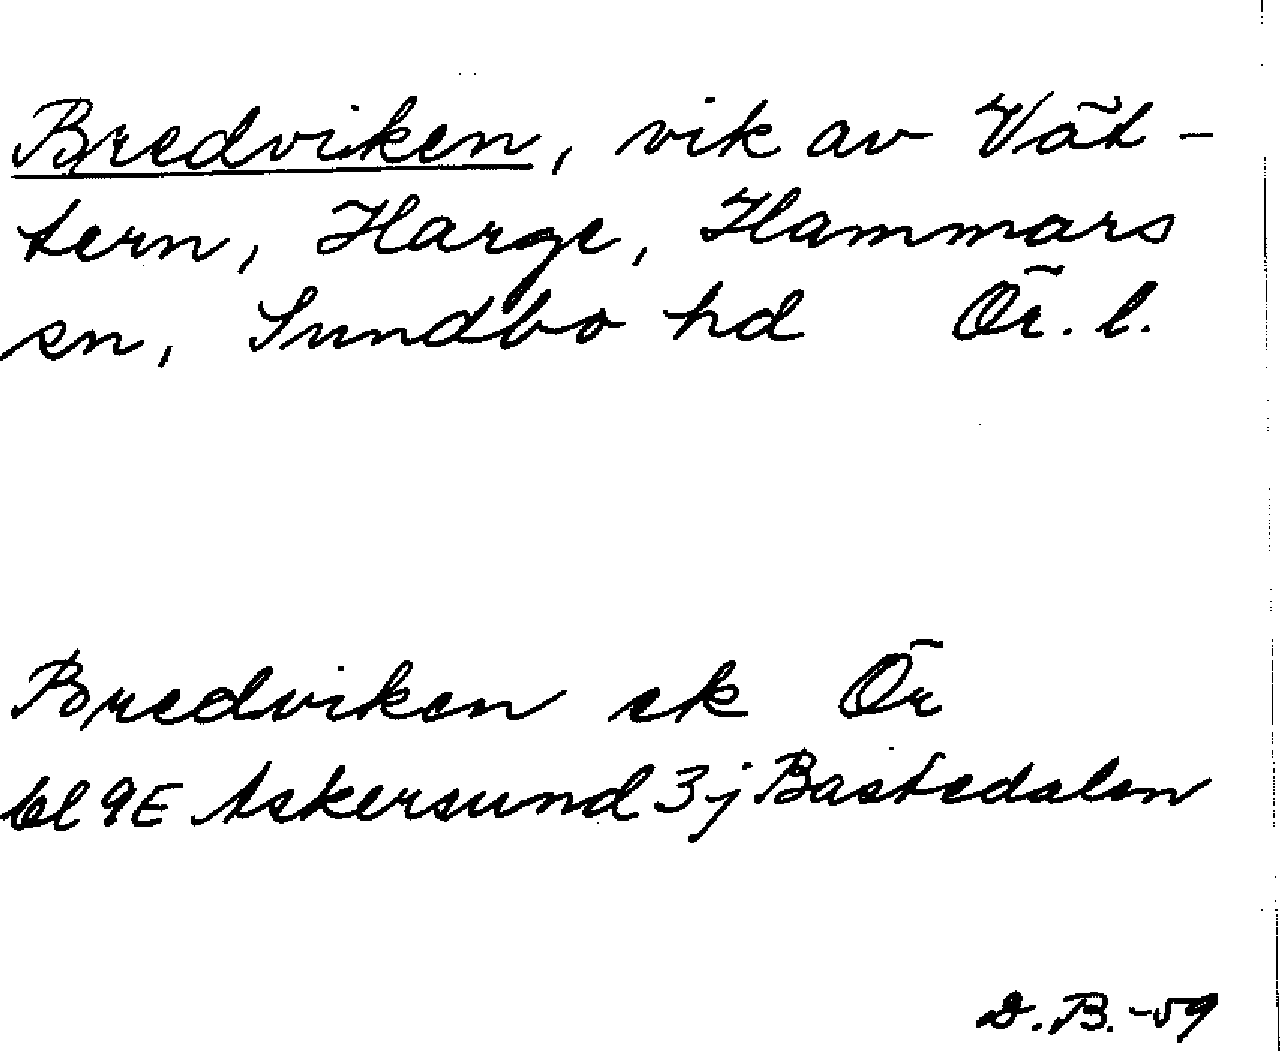 Bredviken, vik av Vät-
tern, Harge, Hammars
sn, Sundbo hd Ör. l.
Bredviken ek Ör
bl 9E Askersund 3j Bastedalen
D.B. -59